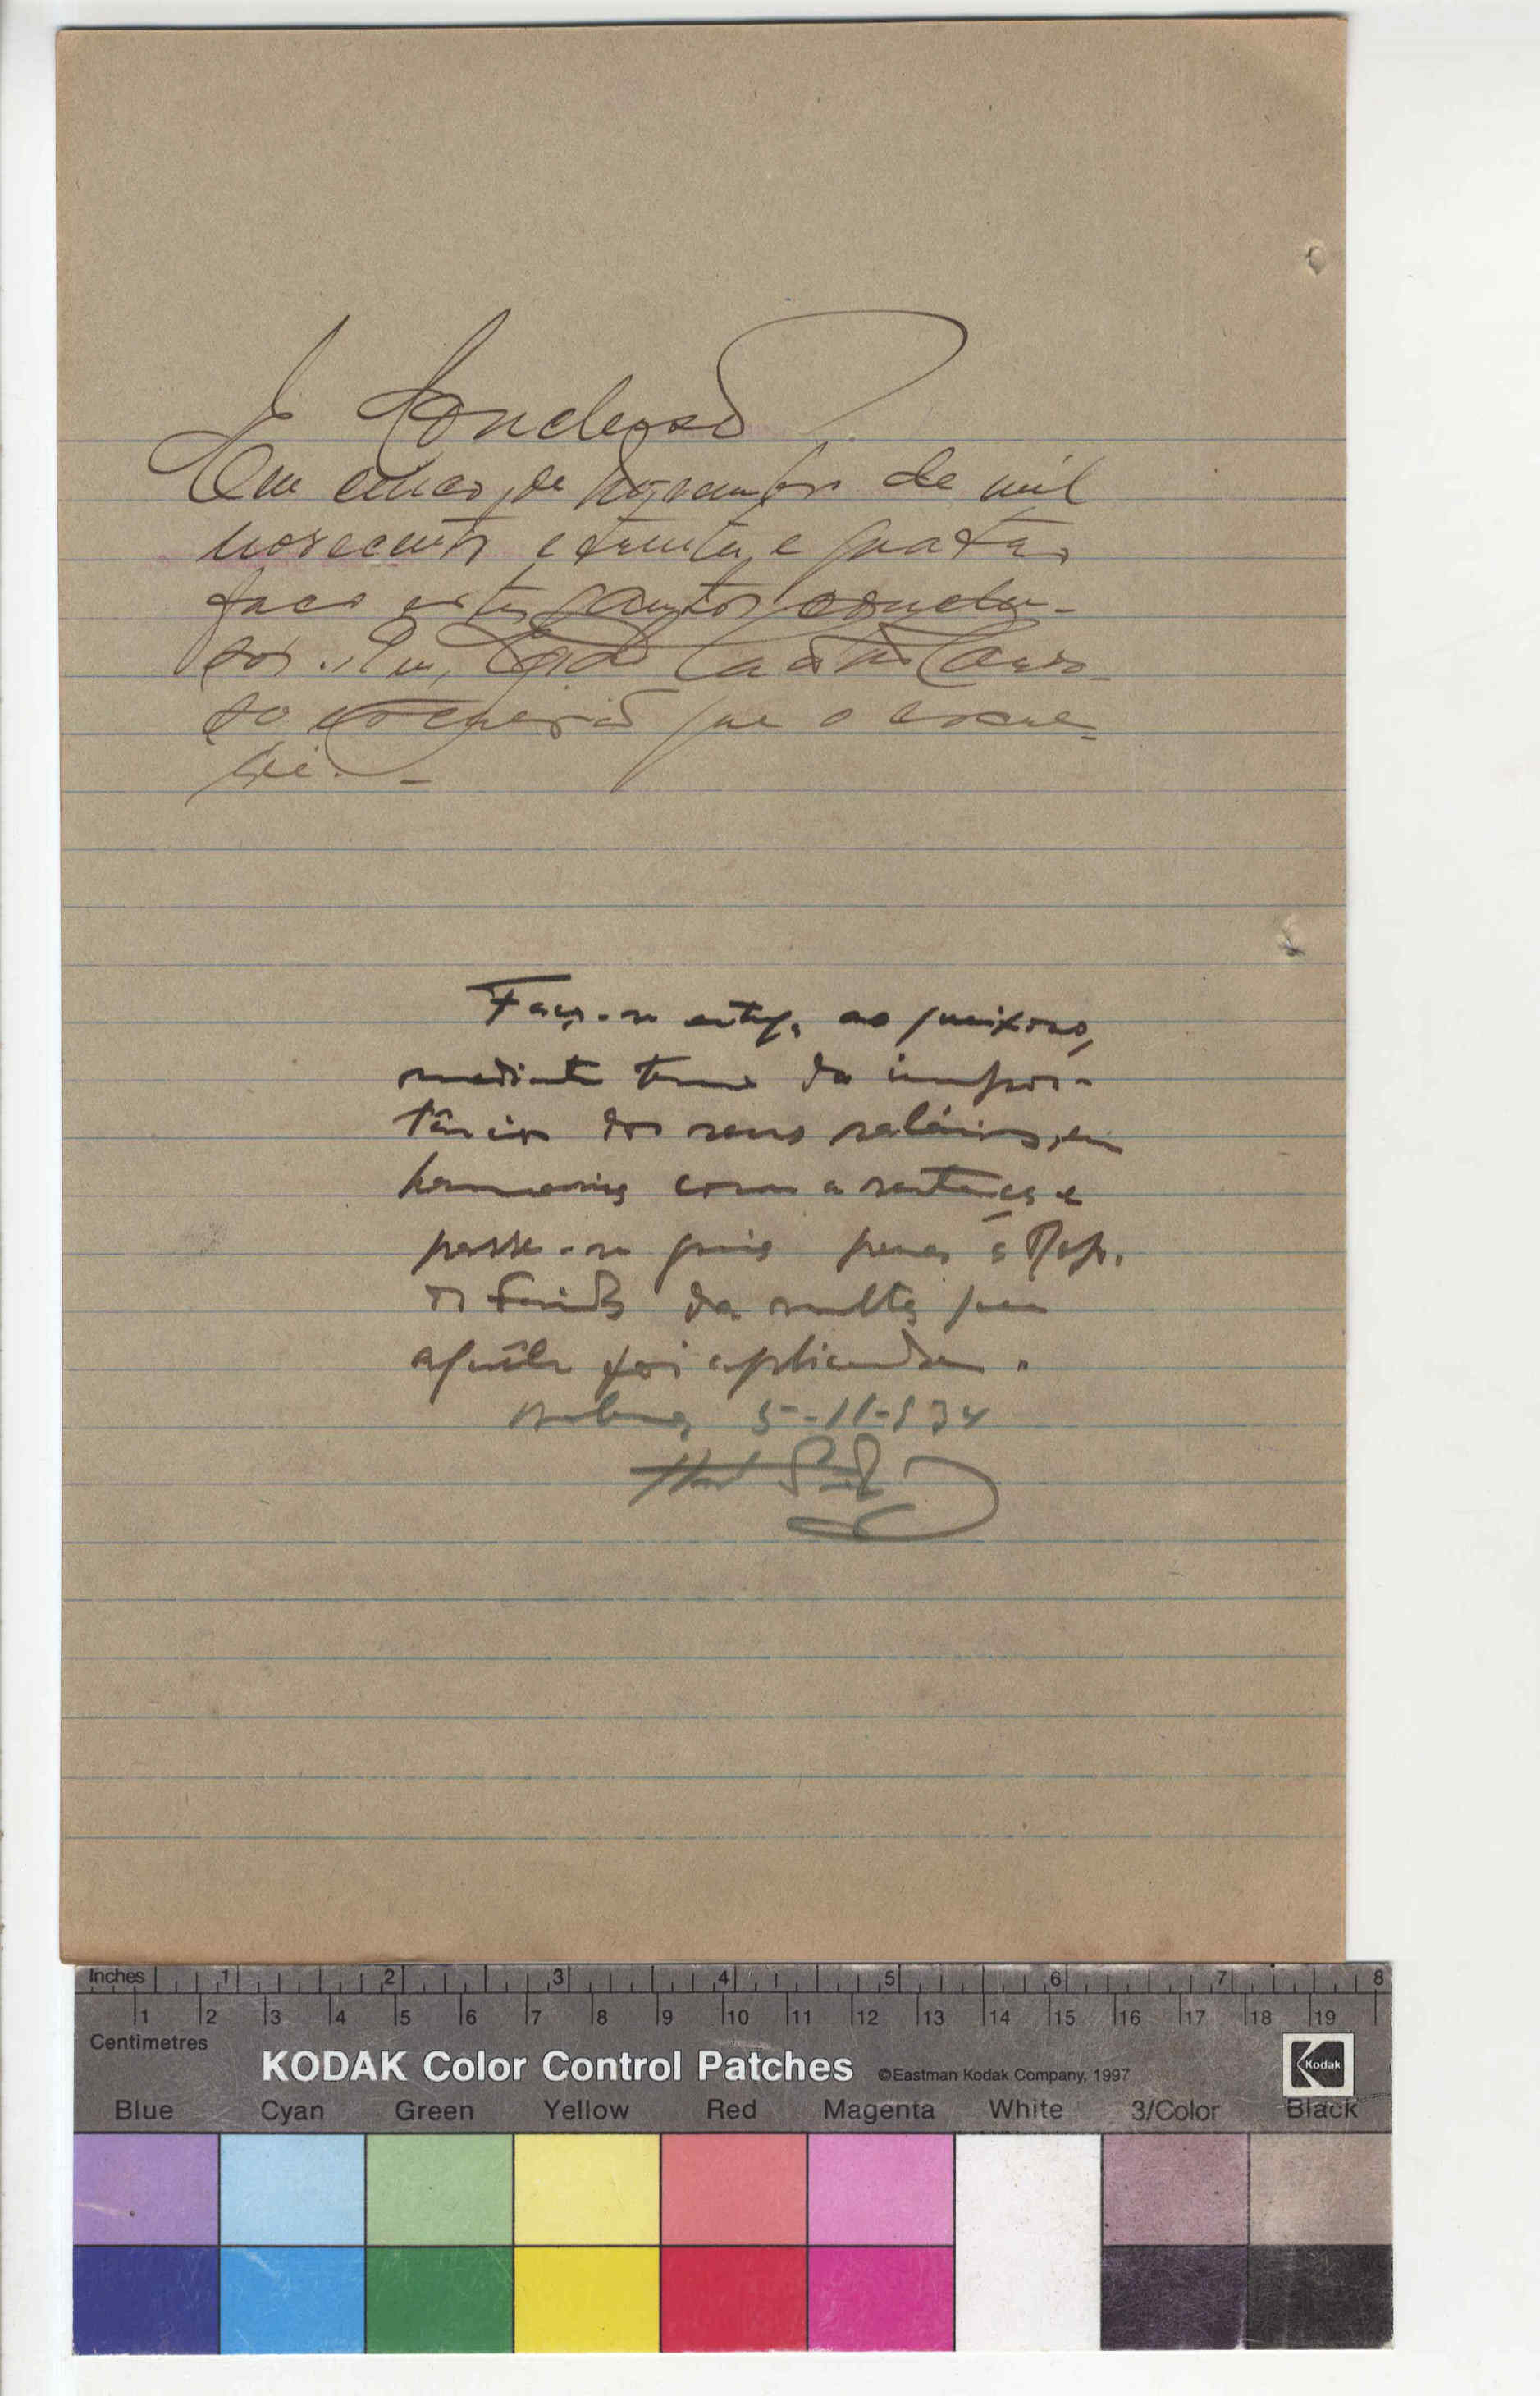 E Conclusão
Em cinco de Novembro de mil
novecentos e trinta e quatro
faço estes autos conclu-
sos. Eu, Castro
so escrivão que o escre-
vi. -
Faça-se entrega ao queixoso,
mediante termo da impor-
tância dos seus salários, em
harmonia com a sentença e
passe-se guia para á Rep.
de da multa que
aquêle foi aplicada.
5-11-934
Inches 1 2 3 4 5 6 7 8
1 2 3 4 5 6 7 8 9 10 11 12 13 14 15 16 17 18 19
Centimetres
KODAK Color Control Patches ©Eastman Kodak Company, 1997 Kodak
Blue Cyan Green Yellow Red Magenta White 3/Color Black